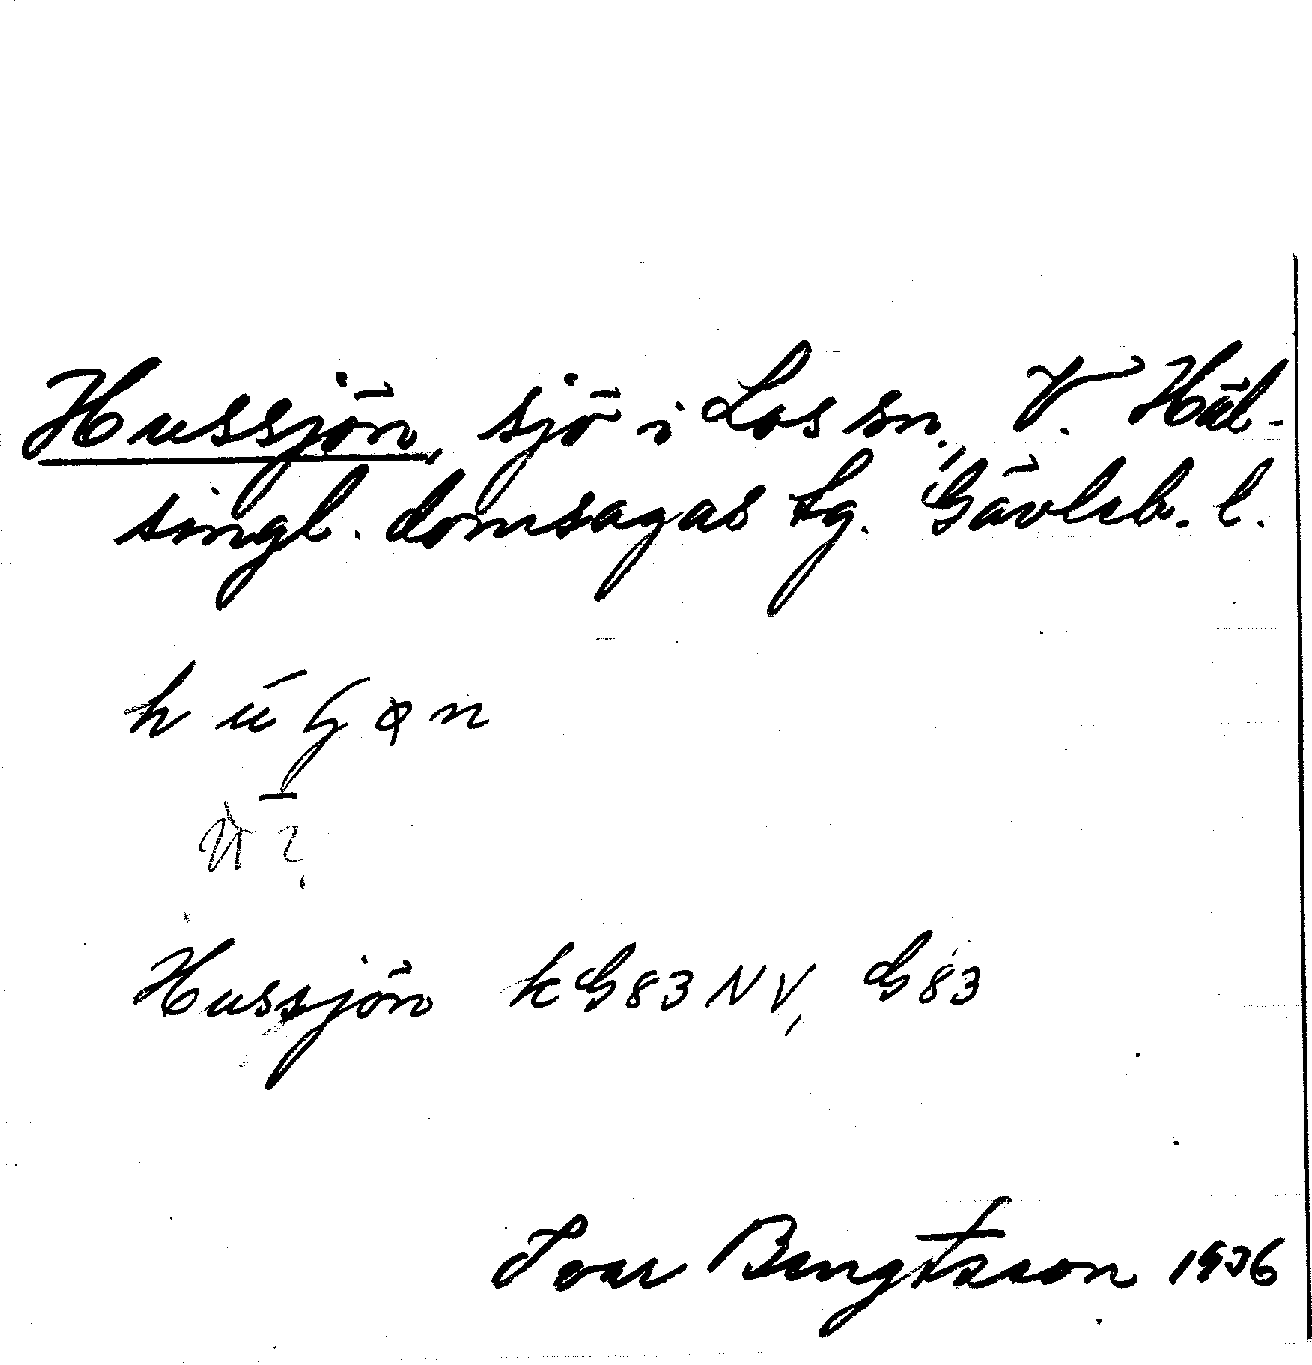 Hussjön, sjö i Los sn., V. Häl-
singl. domsagas tg. Gävleb. l.
Hussjön kG83NV, G83
Ivar Bengtsson 1936